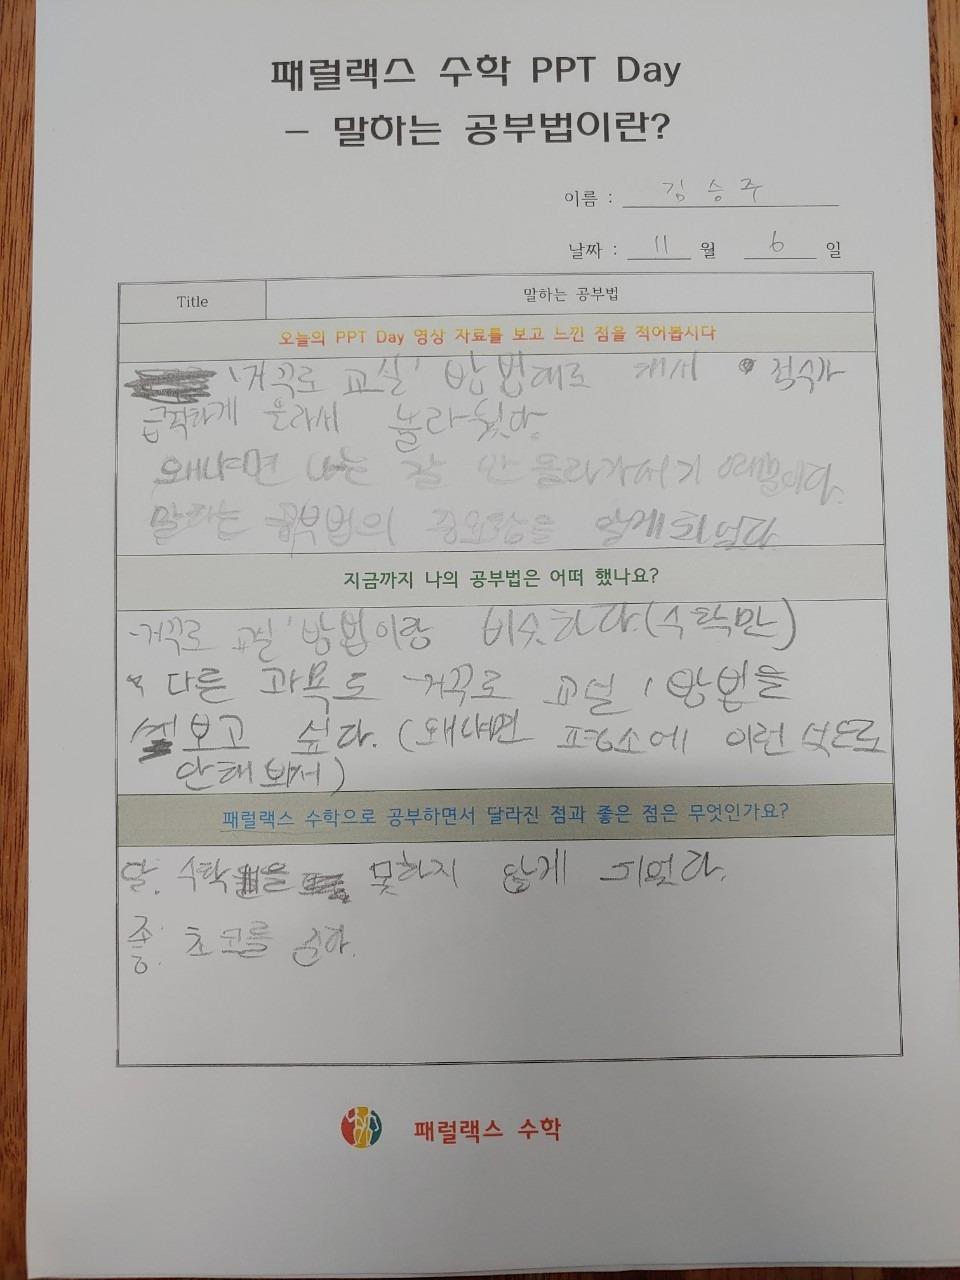 패럴랙스 수학 PPT Day
- 말하는 공부법이란?
이름 : 김승주
날짜 : 11 월 6 일
Title 말하는 공부법
오늘의 PPT Day 영상 자료를 보고 느낀 점을 적어봅시다
'거꾸로 교실' 방법대로 해서 점수가
급작하게 올라서 놀라웠다.
왜냐면 나는 잘 안 올라가서기 때문이다.
말하는 공부법의 중요함을 알게 되었다.
지금까지 나의 공부법은 어떠 했나요?
'거꾸로 교실' 방법이랑 비슷하다.(수학만)
다른 과목도 '거꾸로 교실' 방법을
보고 싶다. (왜냐면 평소에 이런 식으로
안해봐서)
패럴랙스 수학으로 공부하면서 달라진 점과 좋은 점은 무엇인가요?
달. 수학을 못하지 않게 되었다.
좋. 초코를 준다.
패럴랙스 수학